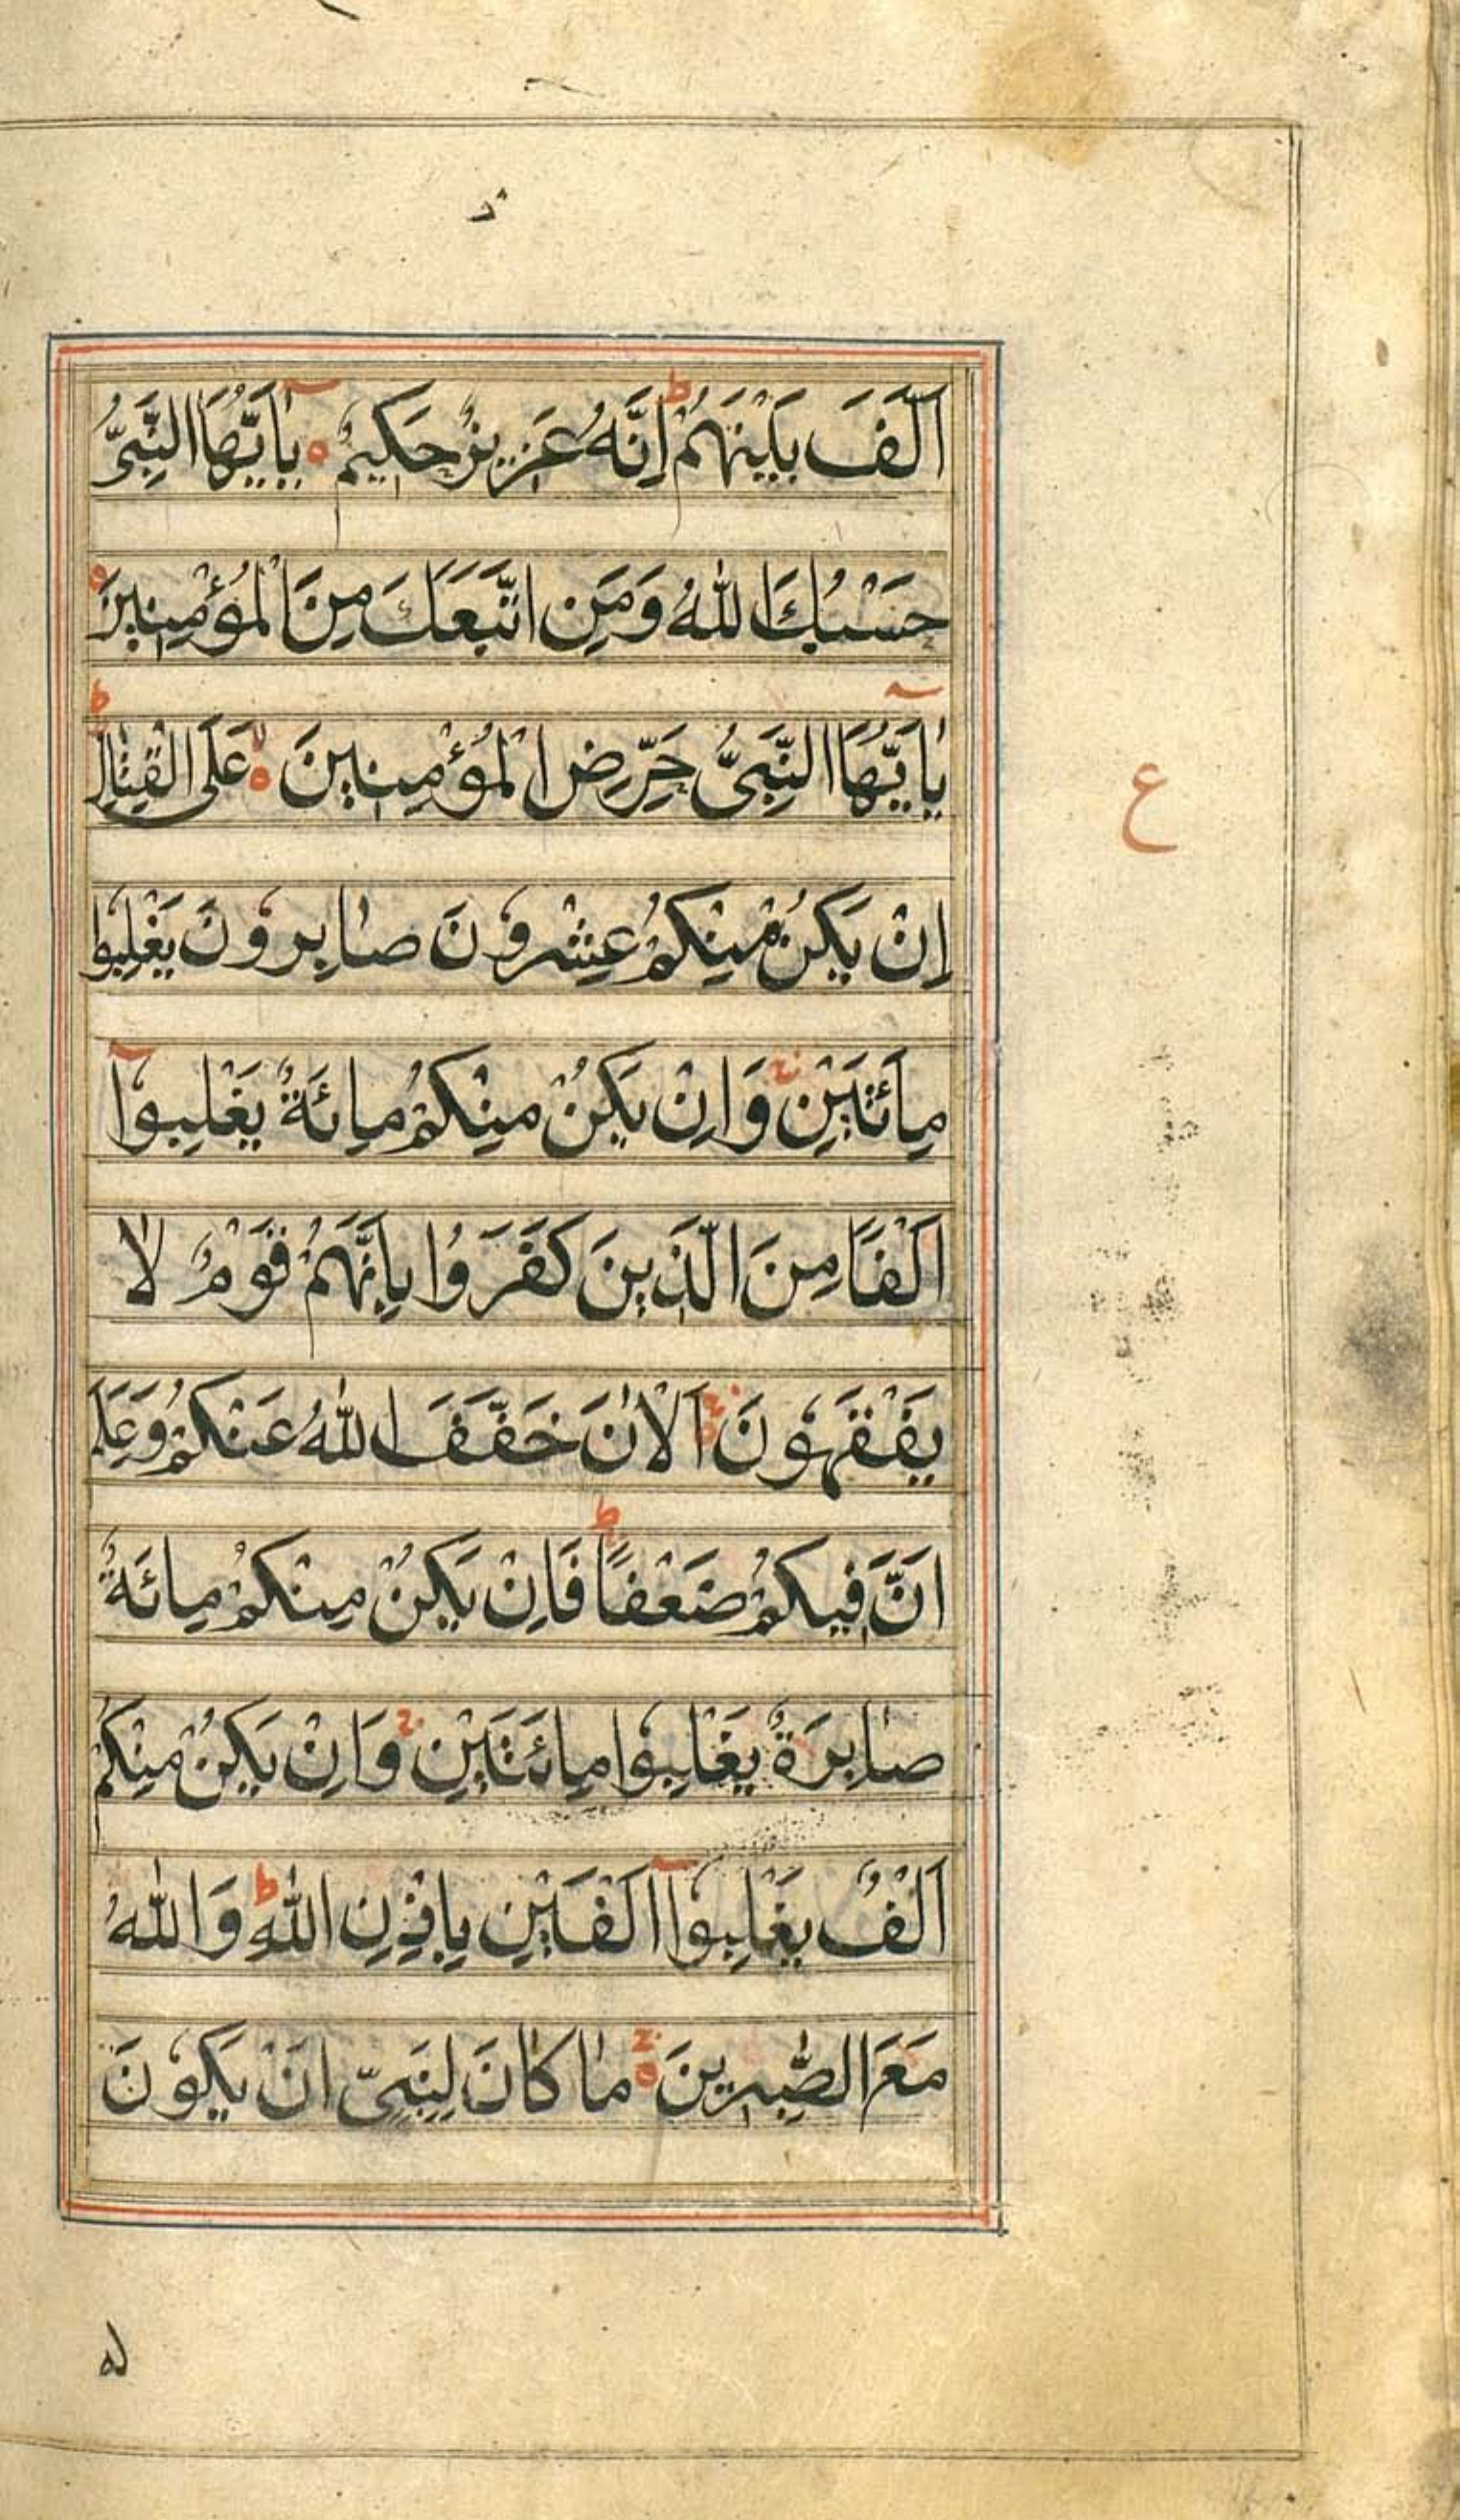 اَلَّفَ بَيْنَهُمْ ط اِنَّهُ عَزِيزٌ حَكِيمٌ ٥ يٰٓاَيُّهَا النَّبِيُّ
حَسْبُكَ اللّٰهُ وَمَنِ اتَّبَعَكَ مِنَ الْمُؤْمِنِينَ ٥
يٰٓاَيُّهَا النَّبِيُّ حَرِّضِ الْمُؤْمِنِينَ ٥ لا عَلَى الْقِتٰالِ ط
اِنْ يَكُنْ مِنْكُمْ عِشْرُونَ صٰابِرُونَ يَغْلِبُوا
مِائَتَيْنِ ج وَاِنْ يَكُنْ مِنْكُمْ مِائَةٌ يَغْلِبُوٓا
اَلْفًا مِنَ الَّذِينَ كَفَرُوا بِاَنَّهُمْ قَوْمٌ لٰا
يَفْقَهُونَ ٥ اَلْاٰنَ خَفَّفَ اللّٰهُ عَنْكُمْ وَعَلِمَ
اَنَّ فِيكُمْ ضَعْفًا ط فَاِنْ يَكُنْ مِنْكُمْ مِائَةٌ
صٰابِرَةٌ يَغْلِبُوا مِائَتَيْنِ ج وَاِنْ يَكُنْ مِنْكُمْ
اَلْفٌ يَغْلِبُوٓا اَلْفَيْنِ بِاِذْنِ اللّٰهِ ط وَاللّٰهُ
مَعَ الصّٰبِرِينَ ٥ مٰا كٰانَ لِنَبِيٍّ اَنْ يَكُونَ
ع
له